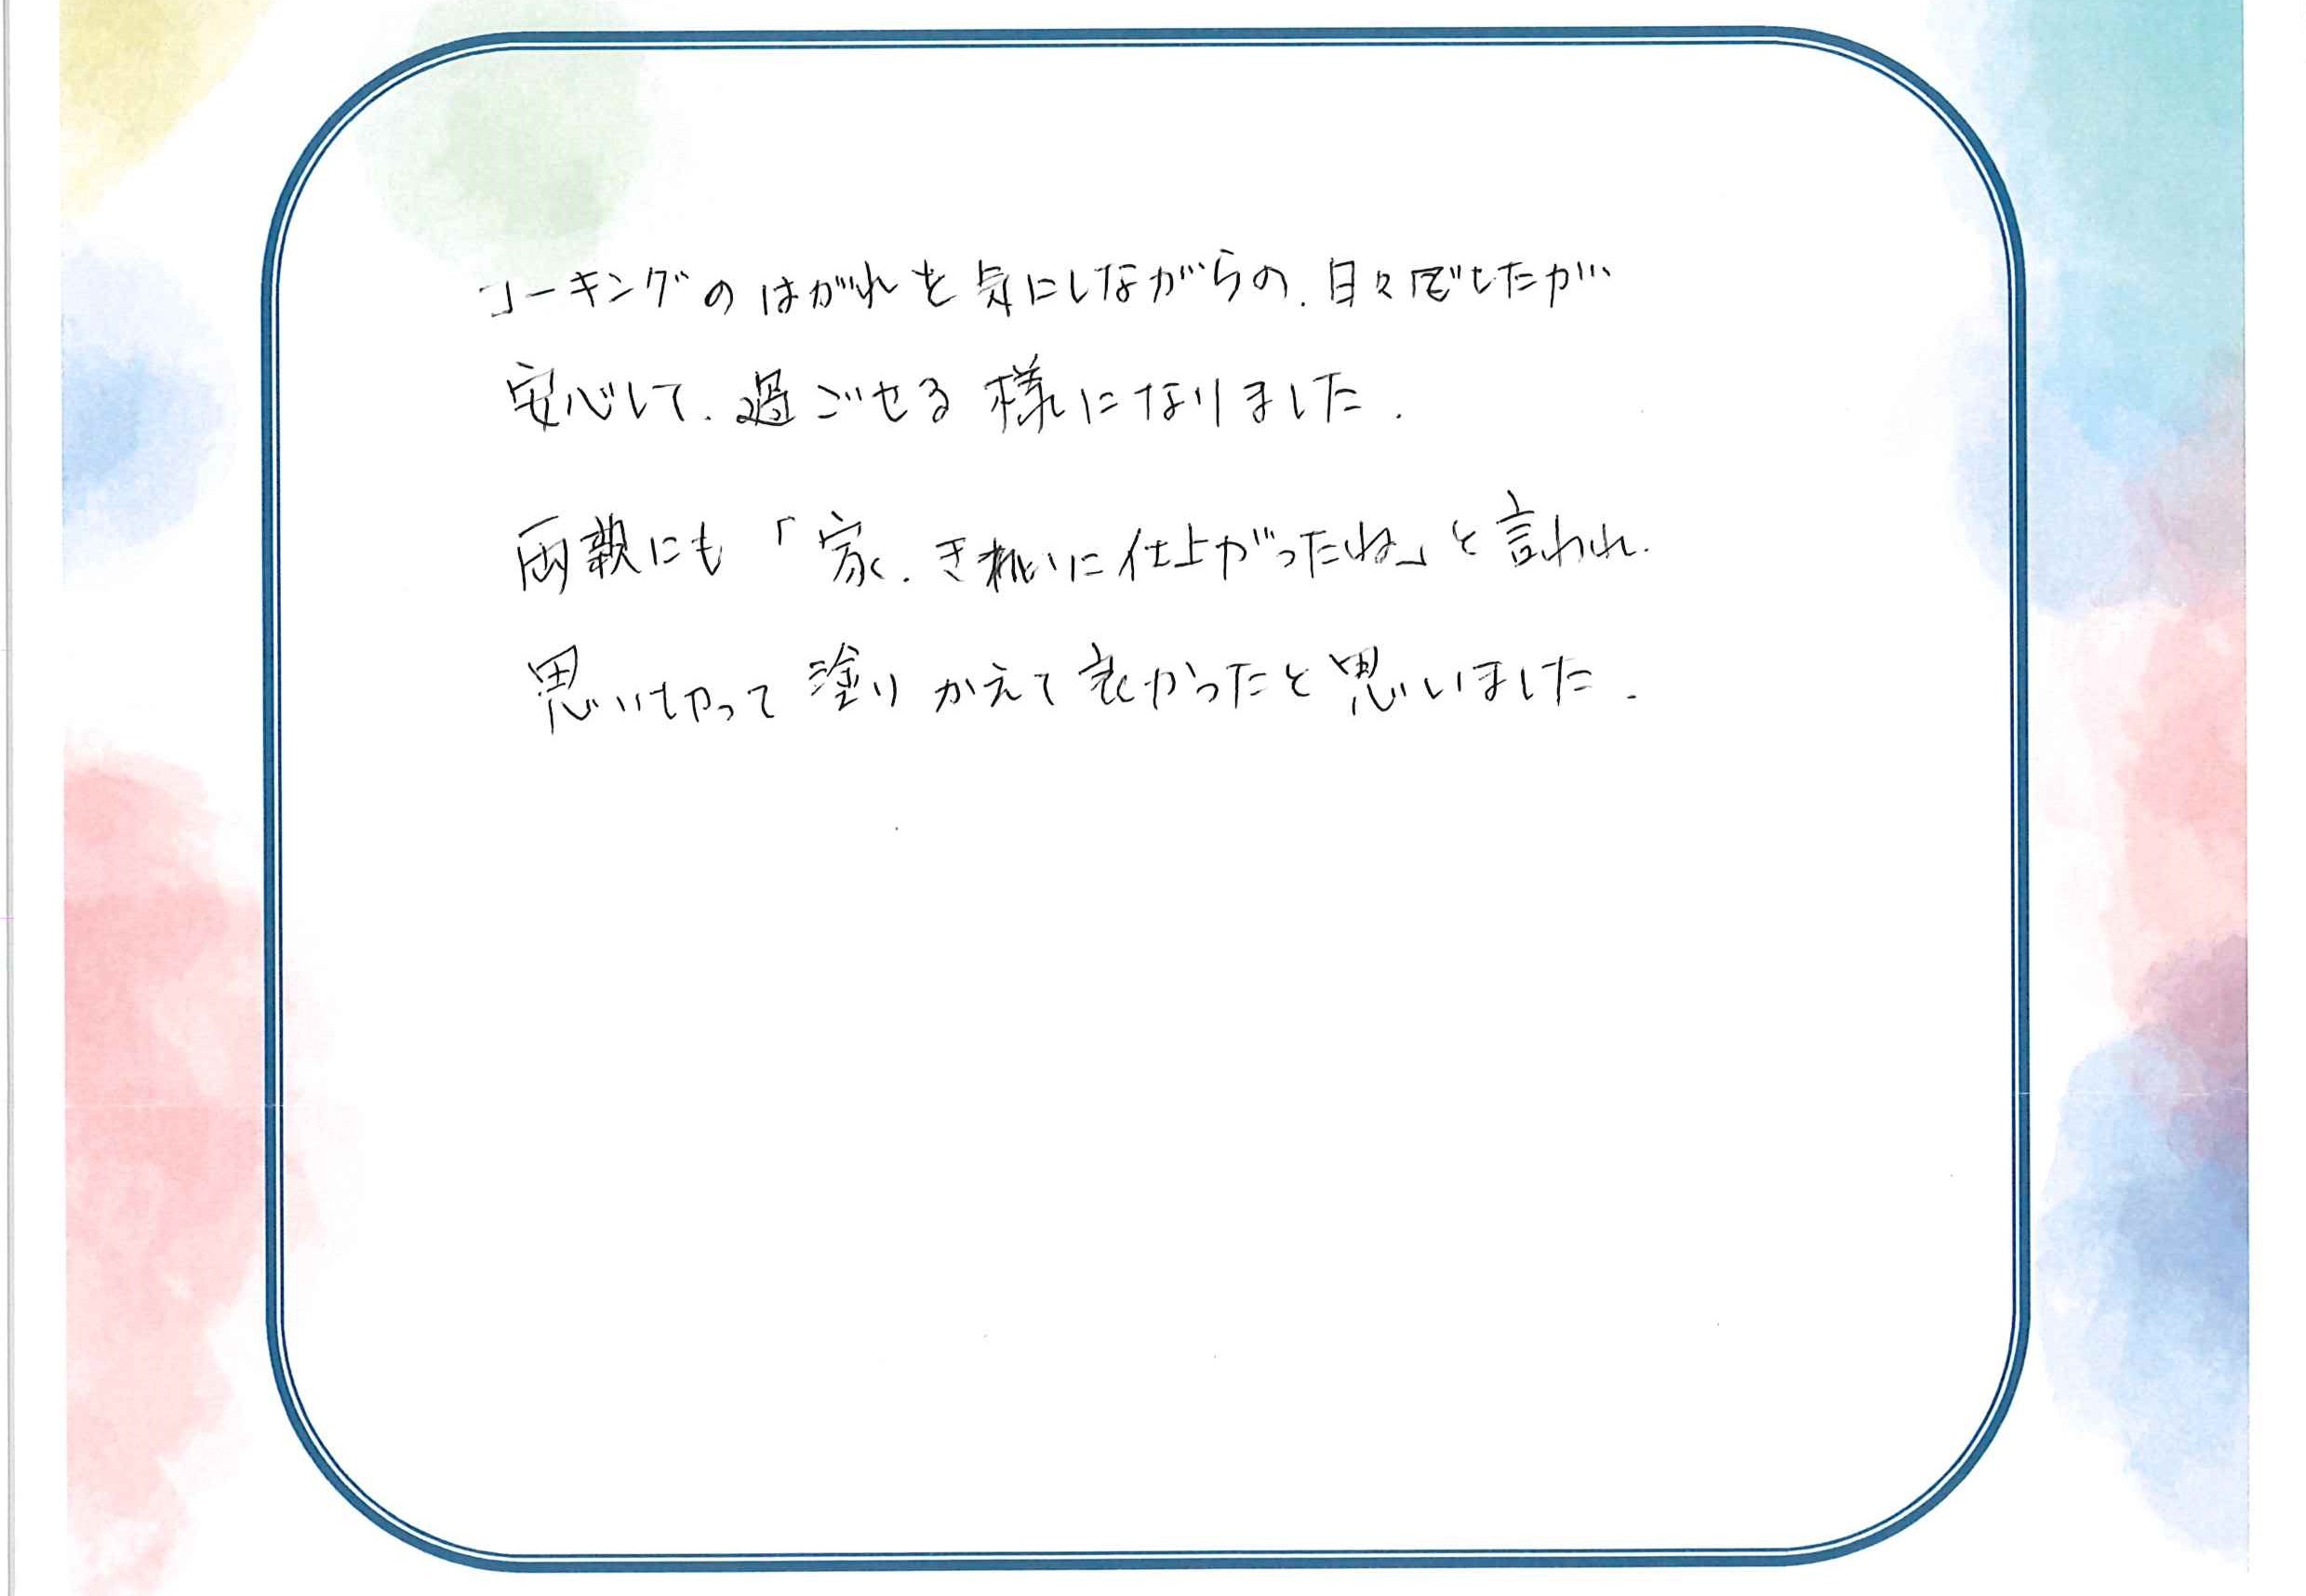 コーキングのはがれを気にしながらの、日々でしたが
安心して、過ごせる様になりました。
両親にも「家、きれいに仕上がったね」と言われ、
思い切って塗りかえて良かったと思いました。